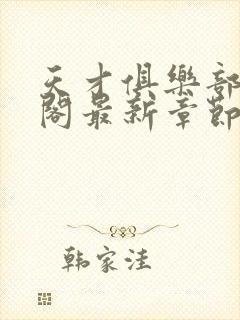 天才俱樂部
閣最新章節
韩家洼